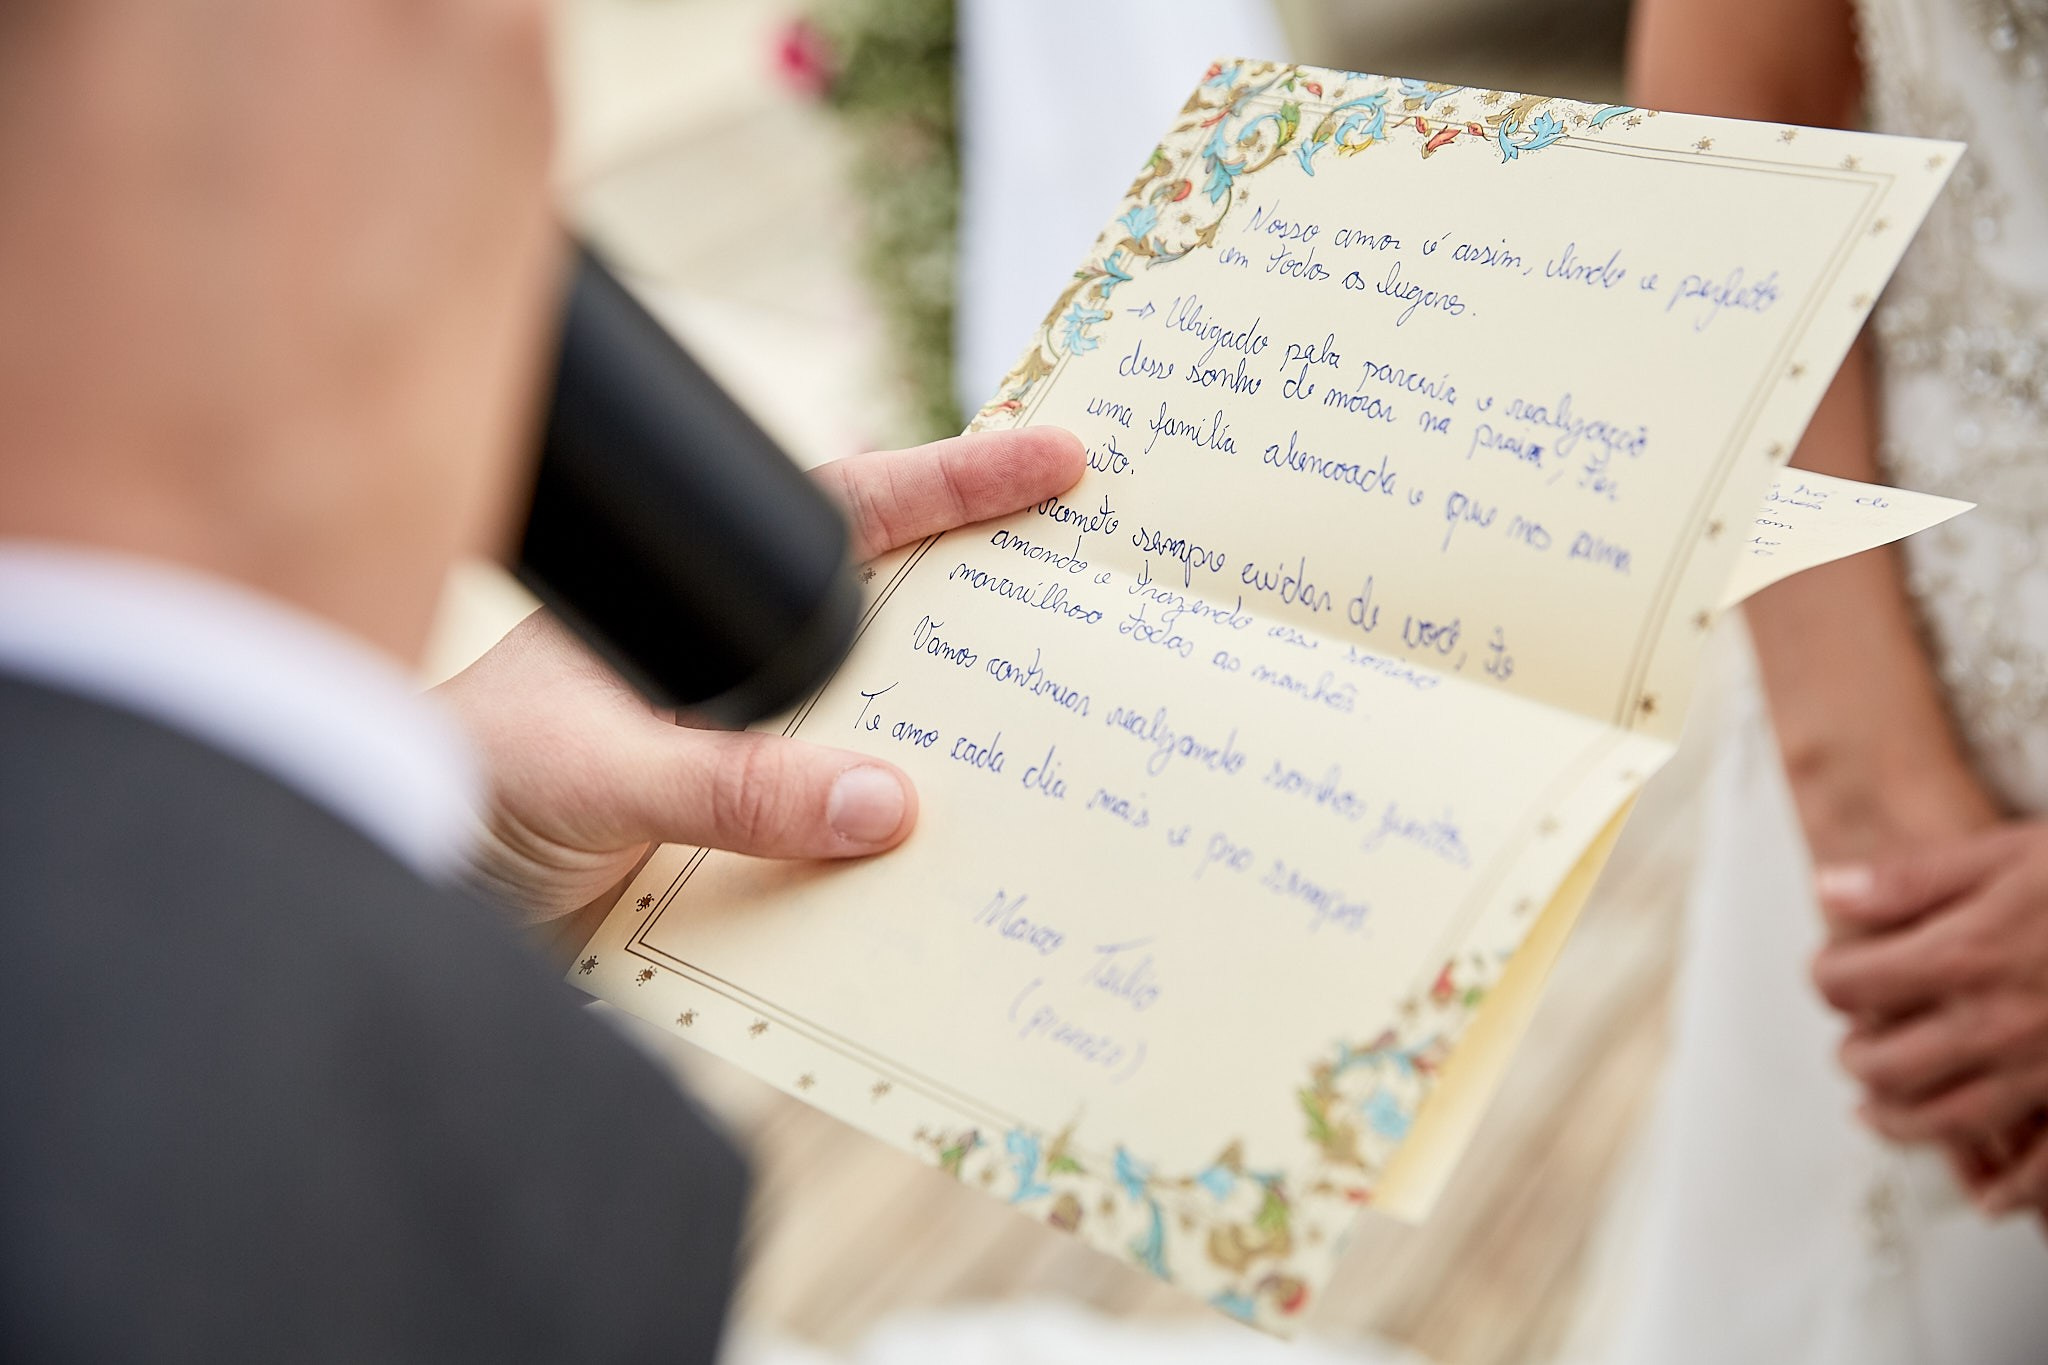 Nosso amor é assim, lindo e perfeito
em todos os lugares.
→ Obrigado pela parceria e realização
desse sonho de morar na praia, ter
uma família abençoada e que nos ama
uito.
Prometo sempre cuidar de você, te
amando e trazendo esse sorriso
maravilhoso todas as manhãs.
Vamos continuar realizando sonhos juntos.
Te amo cada dia mais e pra sempre.
Marco Tulio